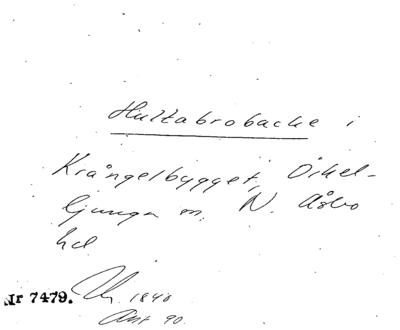 Hultabrobacke i
Krångelbygget, Örkel-
ljunga sn, N. Åsbo
hd
Nr 7479.
1848
90